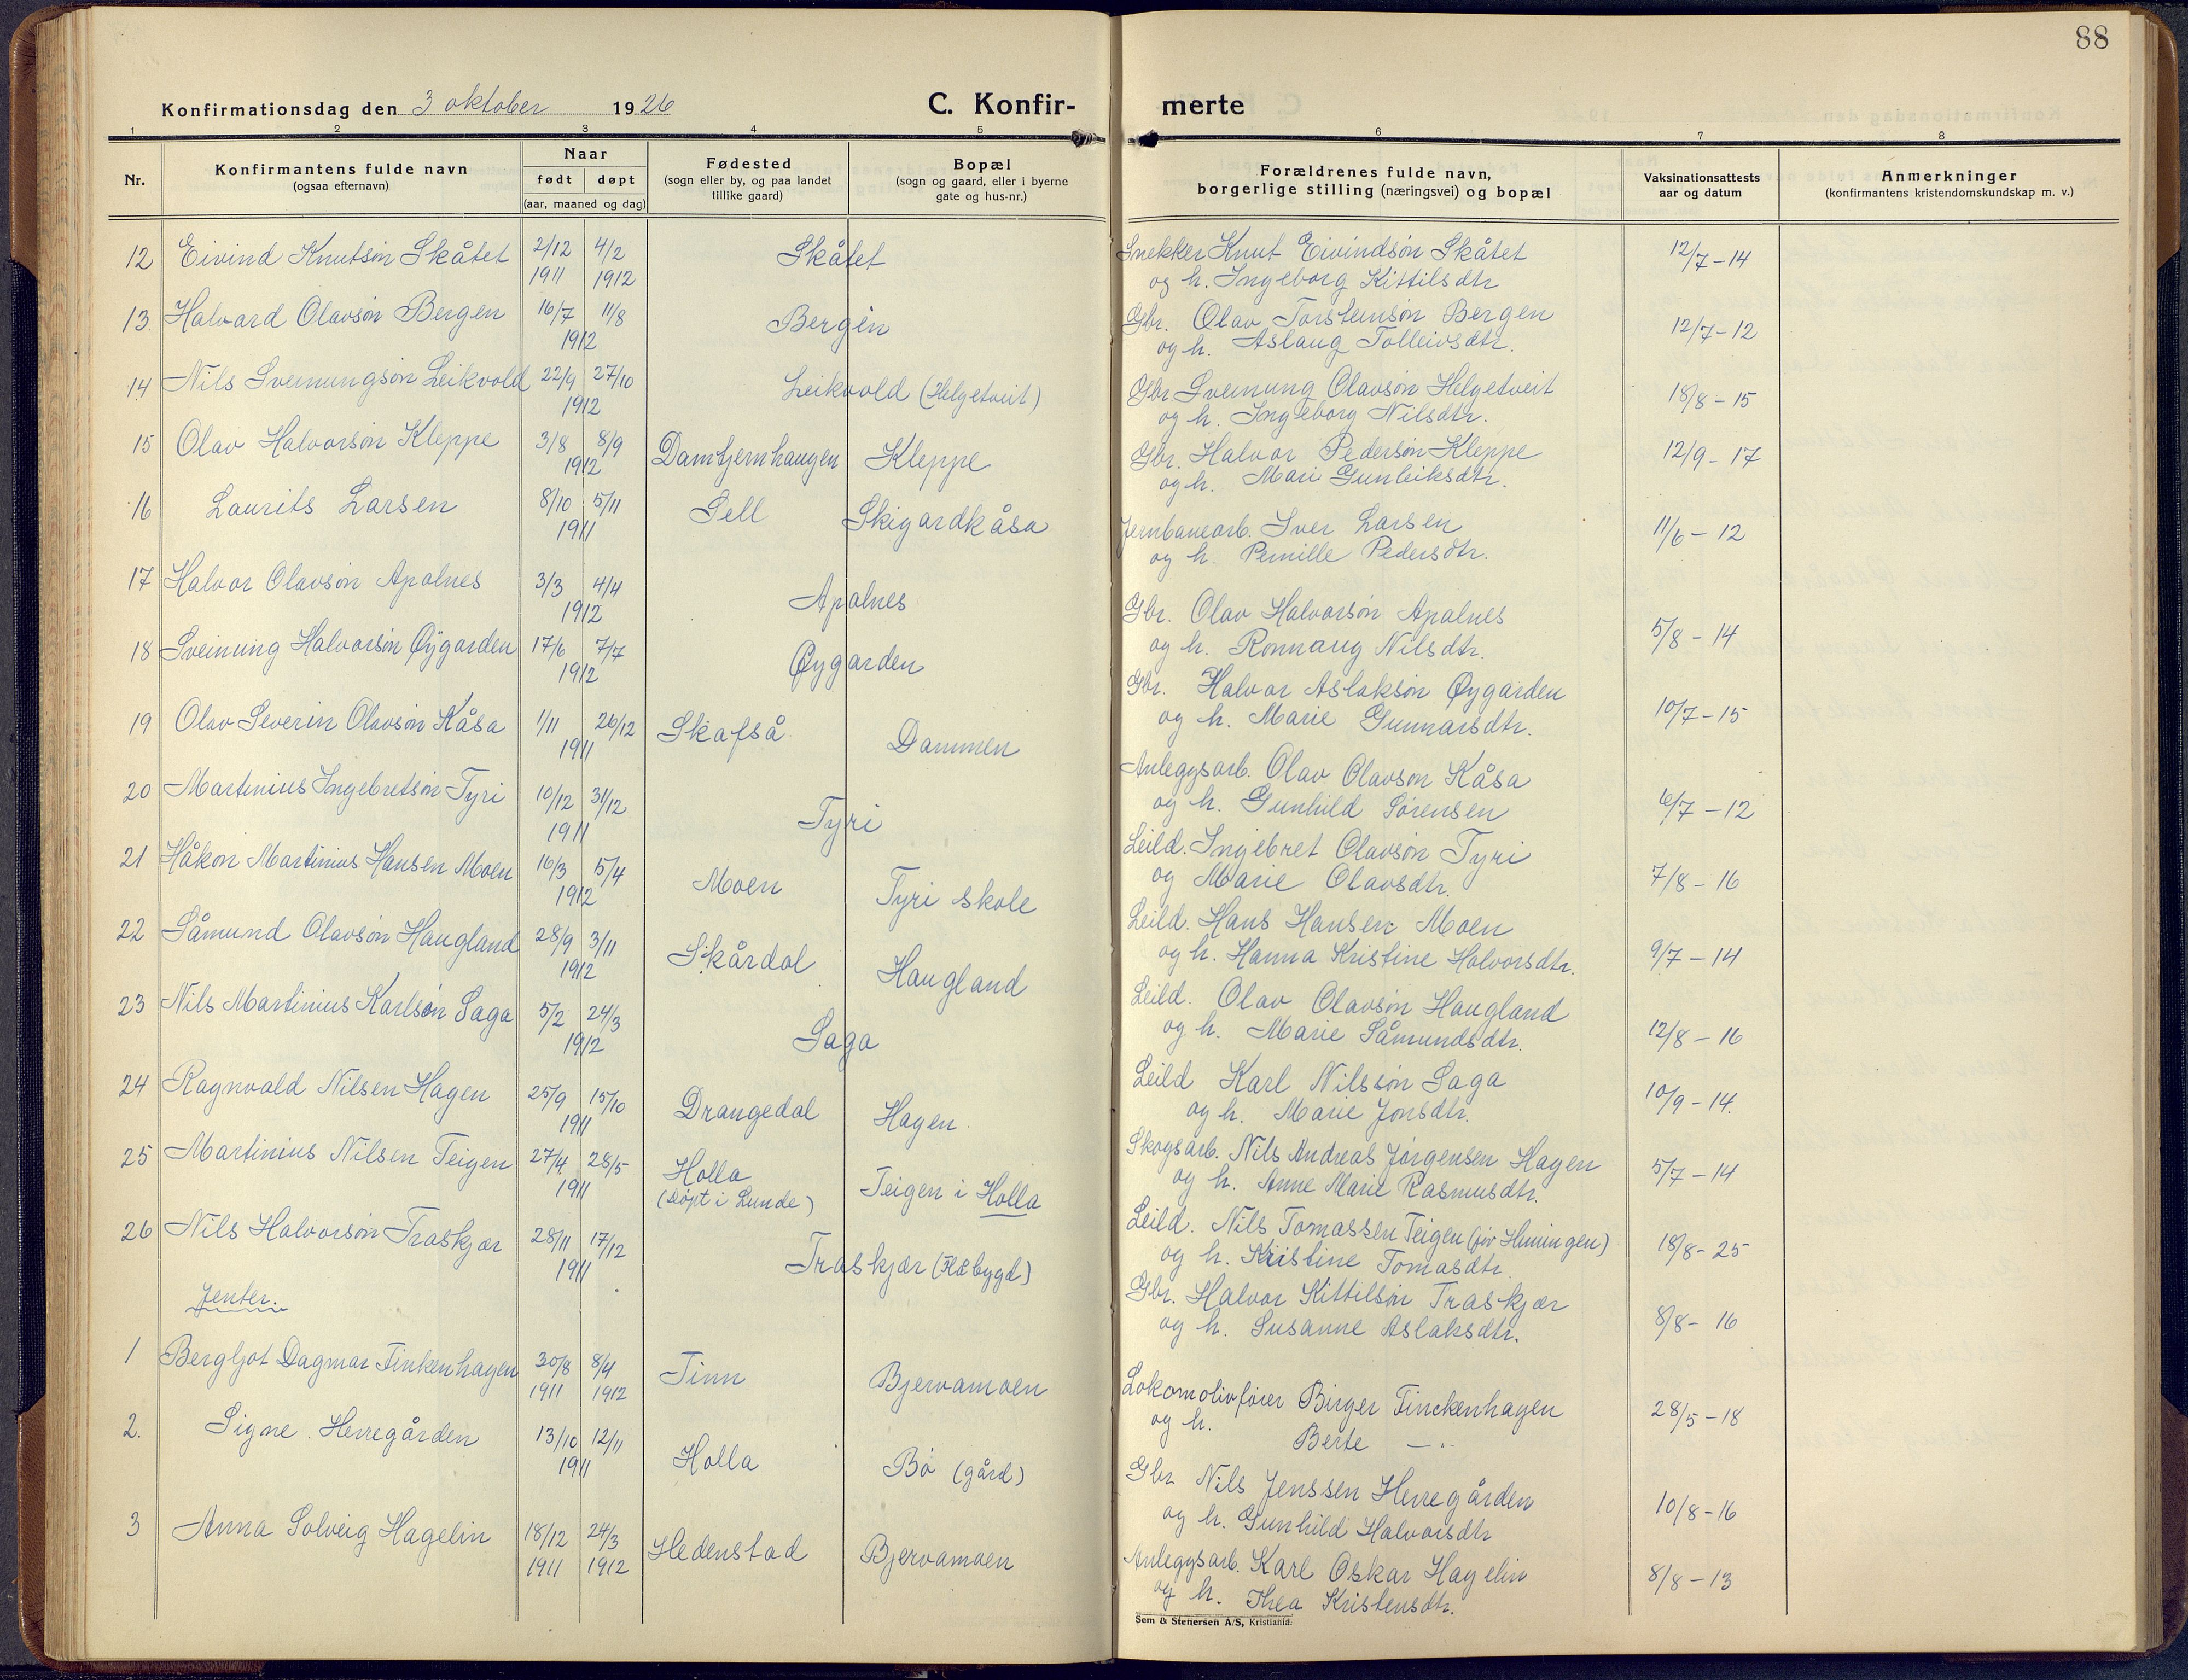 88
Konfirmationsdag den 3 oktober 1926
C. Konfir-
merte
1 2 3 4 5 6 7 8
Nr.
Konfirmantens fulde navn
(ogsaa efternavn)
Naar
født døpt
(aar, maaned og dag)
Fødested
(sogn eller by, og paa landet
tillike gaard)
Bopæl
(sogn og gaard, eller i byerne
gate og hus-nr.)
Forældrenes fulde navn,
borgerlige stilling (næringsvei) og bopæl
Vaksinationsattests
aar og datum
Anmerkninger
(konfirmantens kristendomskundskap m. v.)
12 Eivind Knutsøn Skåtet 2/12 4/2 Skåtet Snekker Knut Eivindsøn Skåtet 12/7-14
1911 1912 og h. Ingeborg Kittilsdtr
13 Halvard Olavsøn Bergen 16/7 11/8 Bergen Gbr. Olav Torsteinsøn Bergen 12/7-12
1912 og h. Aslaug Tolleivsdtr.
14 Nils Sveinungsøn Leikvold 22/9 27/10 Leikvold (Helgetveit) Gbr Sveinung Olavsøn Helgetveit 18/8-15
1912 og h. Ingeborg Nilsdtr.
15 Olav Halvorsøn Kleppe 3/8 8/9 Damtjernhaugen Kleppe Gbr. Halvor Pedersøn Kleppe 12/9-17
1912 og h. Mari Gunleiksdtr.
16 Laurits Larsen 8/10 5/11 Sell Skigardkåsa Jernbanearb. Iver Larsen 11/6-12
1911 og h. Pernille Pedersdtr.
17 Halvor Olavsøn Apalnes 3/3 4/4 Apalnes Gbr. Olav Halvorsøn Apalnes 5/8-14
1912 og h. Rønnaug Nilsdtr.
18 Sveinung Halvorsøn Øygarden 17/6 7/7 Øygarden Gbr. Halvor Aslaksøn Øygarden 10/7-15
1912 og h. Marie Gunnarsdtr.
19 Olav Severin Olavsøn Kåsa 1/11 26/12 Skafså Dammen Anleggsarb. Olav Olavsøn Kåsa 6/7-12
1911 og h. Gunhild Sørensen
20 Martinius Ingebretsøn Tyri 10/12 31/12 Tyri Leild. Ingebret Olavsøn Tyri 7/8-16
1911 og Marie Olavsdtr.
21 Håkon Martinius Hansen Moen 16/3 5/4 Moen Tyri skole Leild. Hans Hansen Moen 9/7-14
1912 og h. Hanna Kristine Halvorsdtr.
22 Såmund Olavsøn Haugland 28/9 3/11 Skårdal Haugland Leild. Olav Olavsøn Haugland 12/8-16
1912 og h. Marie Såmundsdtr.
23 Nils Martinius Karlsøn Saga 5/2 24/3 Saga Leild Karl Nilssøn Saga 10/9-14.
1912 og h. Marie Jonsdtr.
24 Ragnvald Nilsen Hagen 25/9 15/10 Drangedal Hagen Skogsarb. Nils Andreas Jørgensen Hagen 5/7-14
1911 og h. Anne Marie Rasmusdtr.
25 Martinius Nilsen Teigen 27/4 28/5 Holla Teigen i Holla Leild. Nils Tomassen Teigen 18/8-25
1911 (døpt i Lunde) og h. Kristine Tomasdtr.
26 Nils Halvorsøn Traskjær 28/11 17/12 Traskjær (Flåbygd) Gbr. Halvor Kittilsøn Traskjær 8/8-16
1911 og h. Susanne Aslaksdtr.
Jenter.
1 Bergljot Dagmar Finkenhagen 30/8 8/4 Tinn Bjervamoen Lokomotivfører Birger Finckenhagen 28/5-18
1911 1912 og h. Berte —"—
2. Signe Herregården 13/10 12/11 Holla Bø (gård) Gbr Nils Jenssen Herregården 10/8-16
1911 og h. Gunhild Halvorsdtr
3 Anna Solveig Hagelin 18/12 24/3 Hedenstad Bjervamoen Anleggsarb. Karl Oskar Hagelin 8/8-13
1911 1912 og h. Thea Kristensdtr.
Sem & Stenersen A/S, Kristiania.